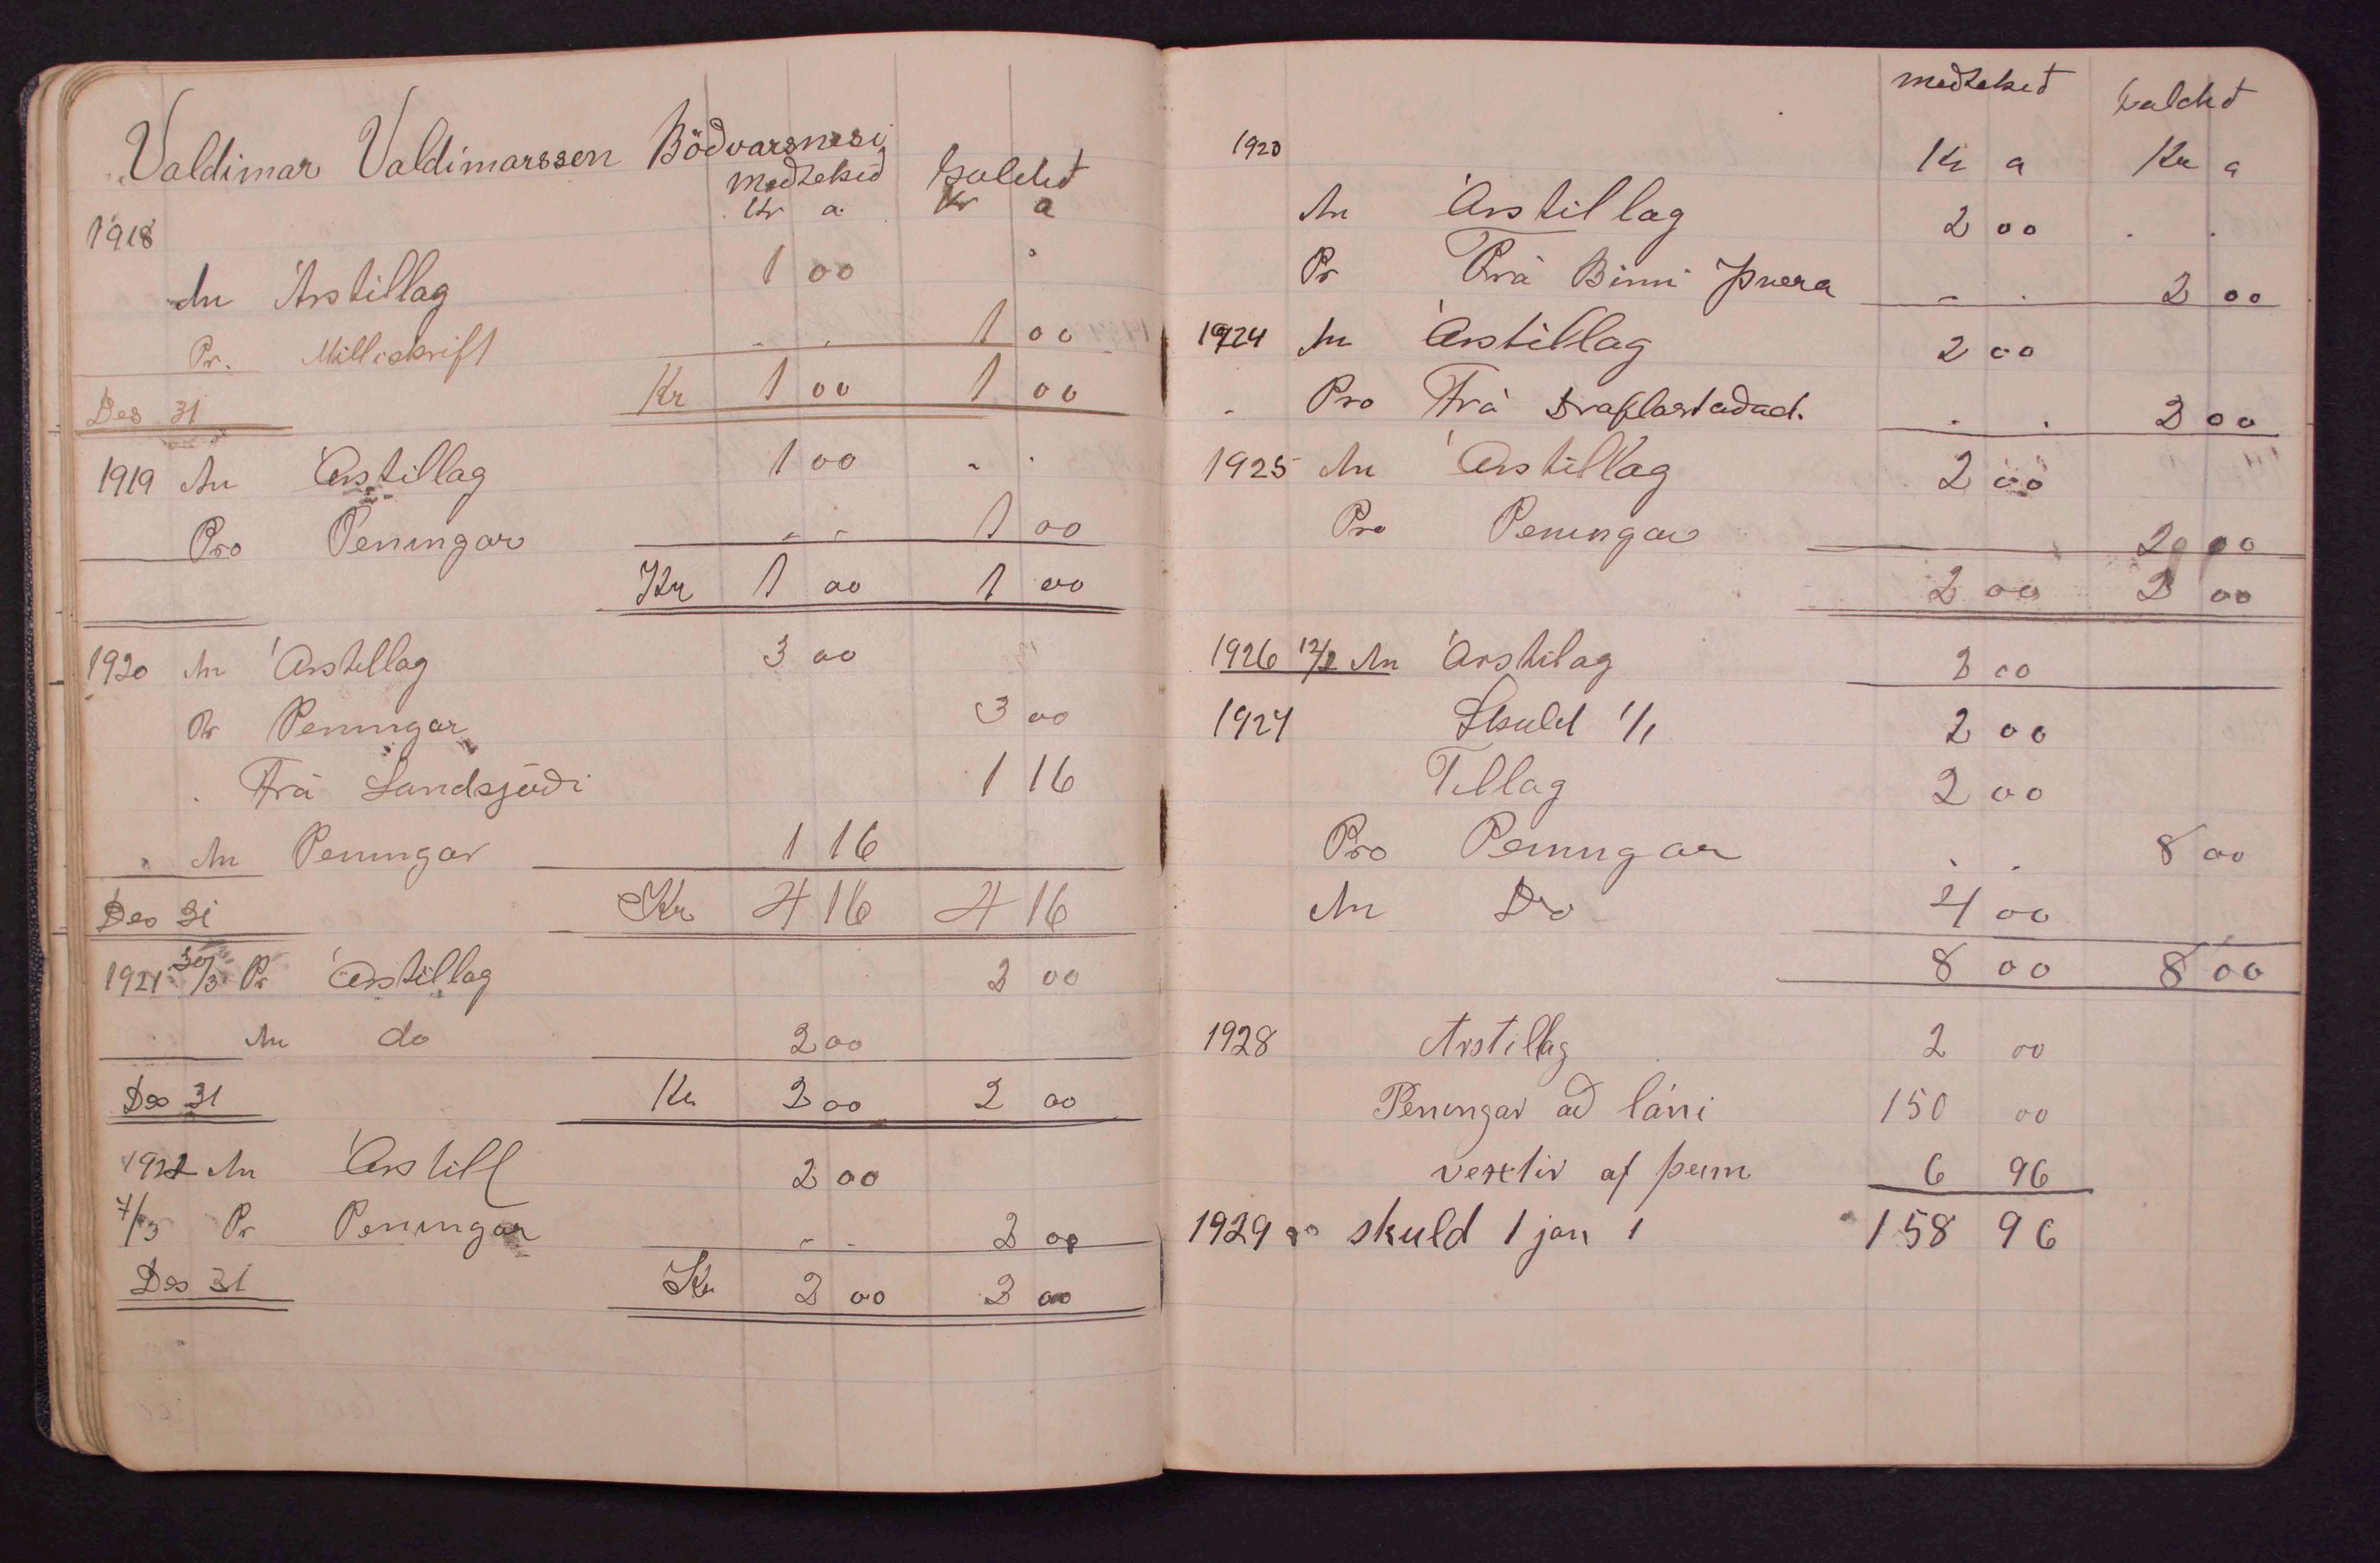 Valdimar Valdimarssen Böðvarsnesi
meðtekið goldið
Kr a. Kr a
1918
An Árstillag 1 00
Pr. Milliskrift - - 1 00
Des 31 Kr 1 00 1 00
1919 An Árstillag 1 00 - -
Pro Peningar - - 1 00
Kr 1 00 1 00
1920 An Árstillag 3 00
Pr Peningar 3 00
Frá Landsjóði 1 16
An Peningar 1 16
Des 31 Kr 4 16 4 16
1921 30/3 Pr Árstillag 2 00
An do 2 00
Des 31 Kr 2 00 2 00
1922 An Árstill 2 00
7/3 Pr Peningar - - 2 00
Des 31 Kr 2 00 2 00
meðtekið goldið
1923 Kr a Kr a
An Árstillag 2 00 . .
Pr Frá Binni Þvera - . 2 00
1924 An Árstillag 2 00
- Pro Frá Draflastaðad. . . 2 00
1925 An Árstillag 2 00
Pro Peningar 2 00
2 00 2 00
1926 12/2 An Árstilag 2 00
1927 Skuld 1/1 2 00
Tillag 2 00
Pro Peningar . . 8 00
An Do 4 00
8 00 8 00
1928 Árstillag 2 00
Peningar að láni 150 00
vextir af þeim 6 96
1929 skuld 1 jan 1 158 96